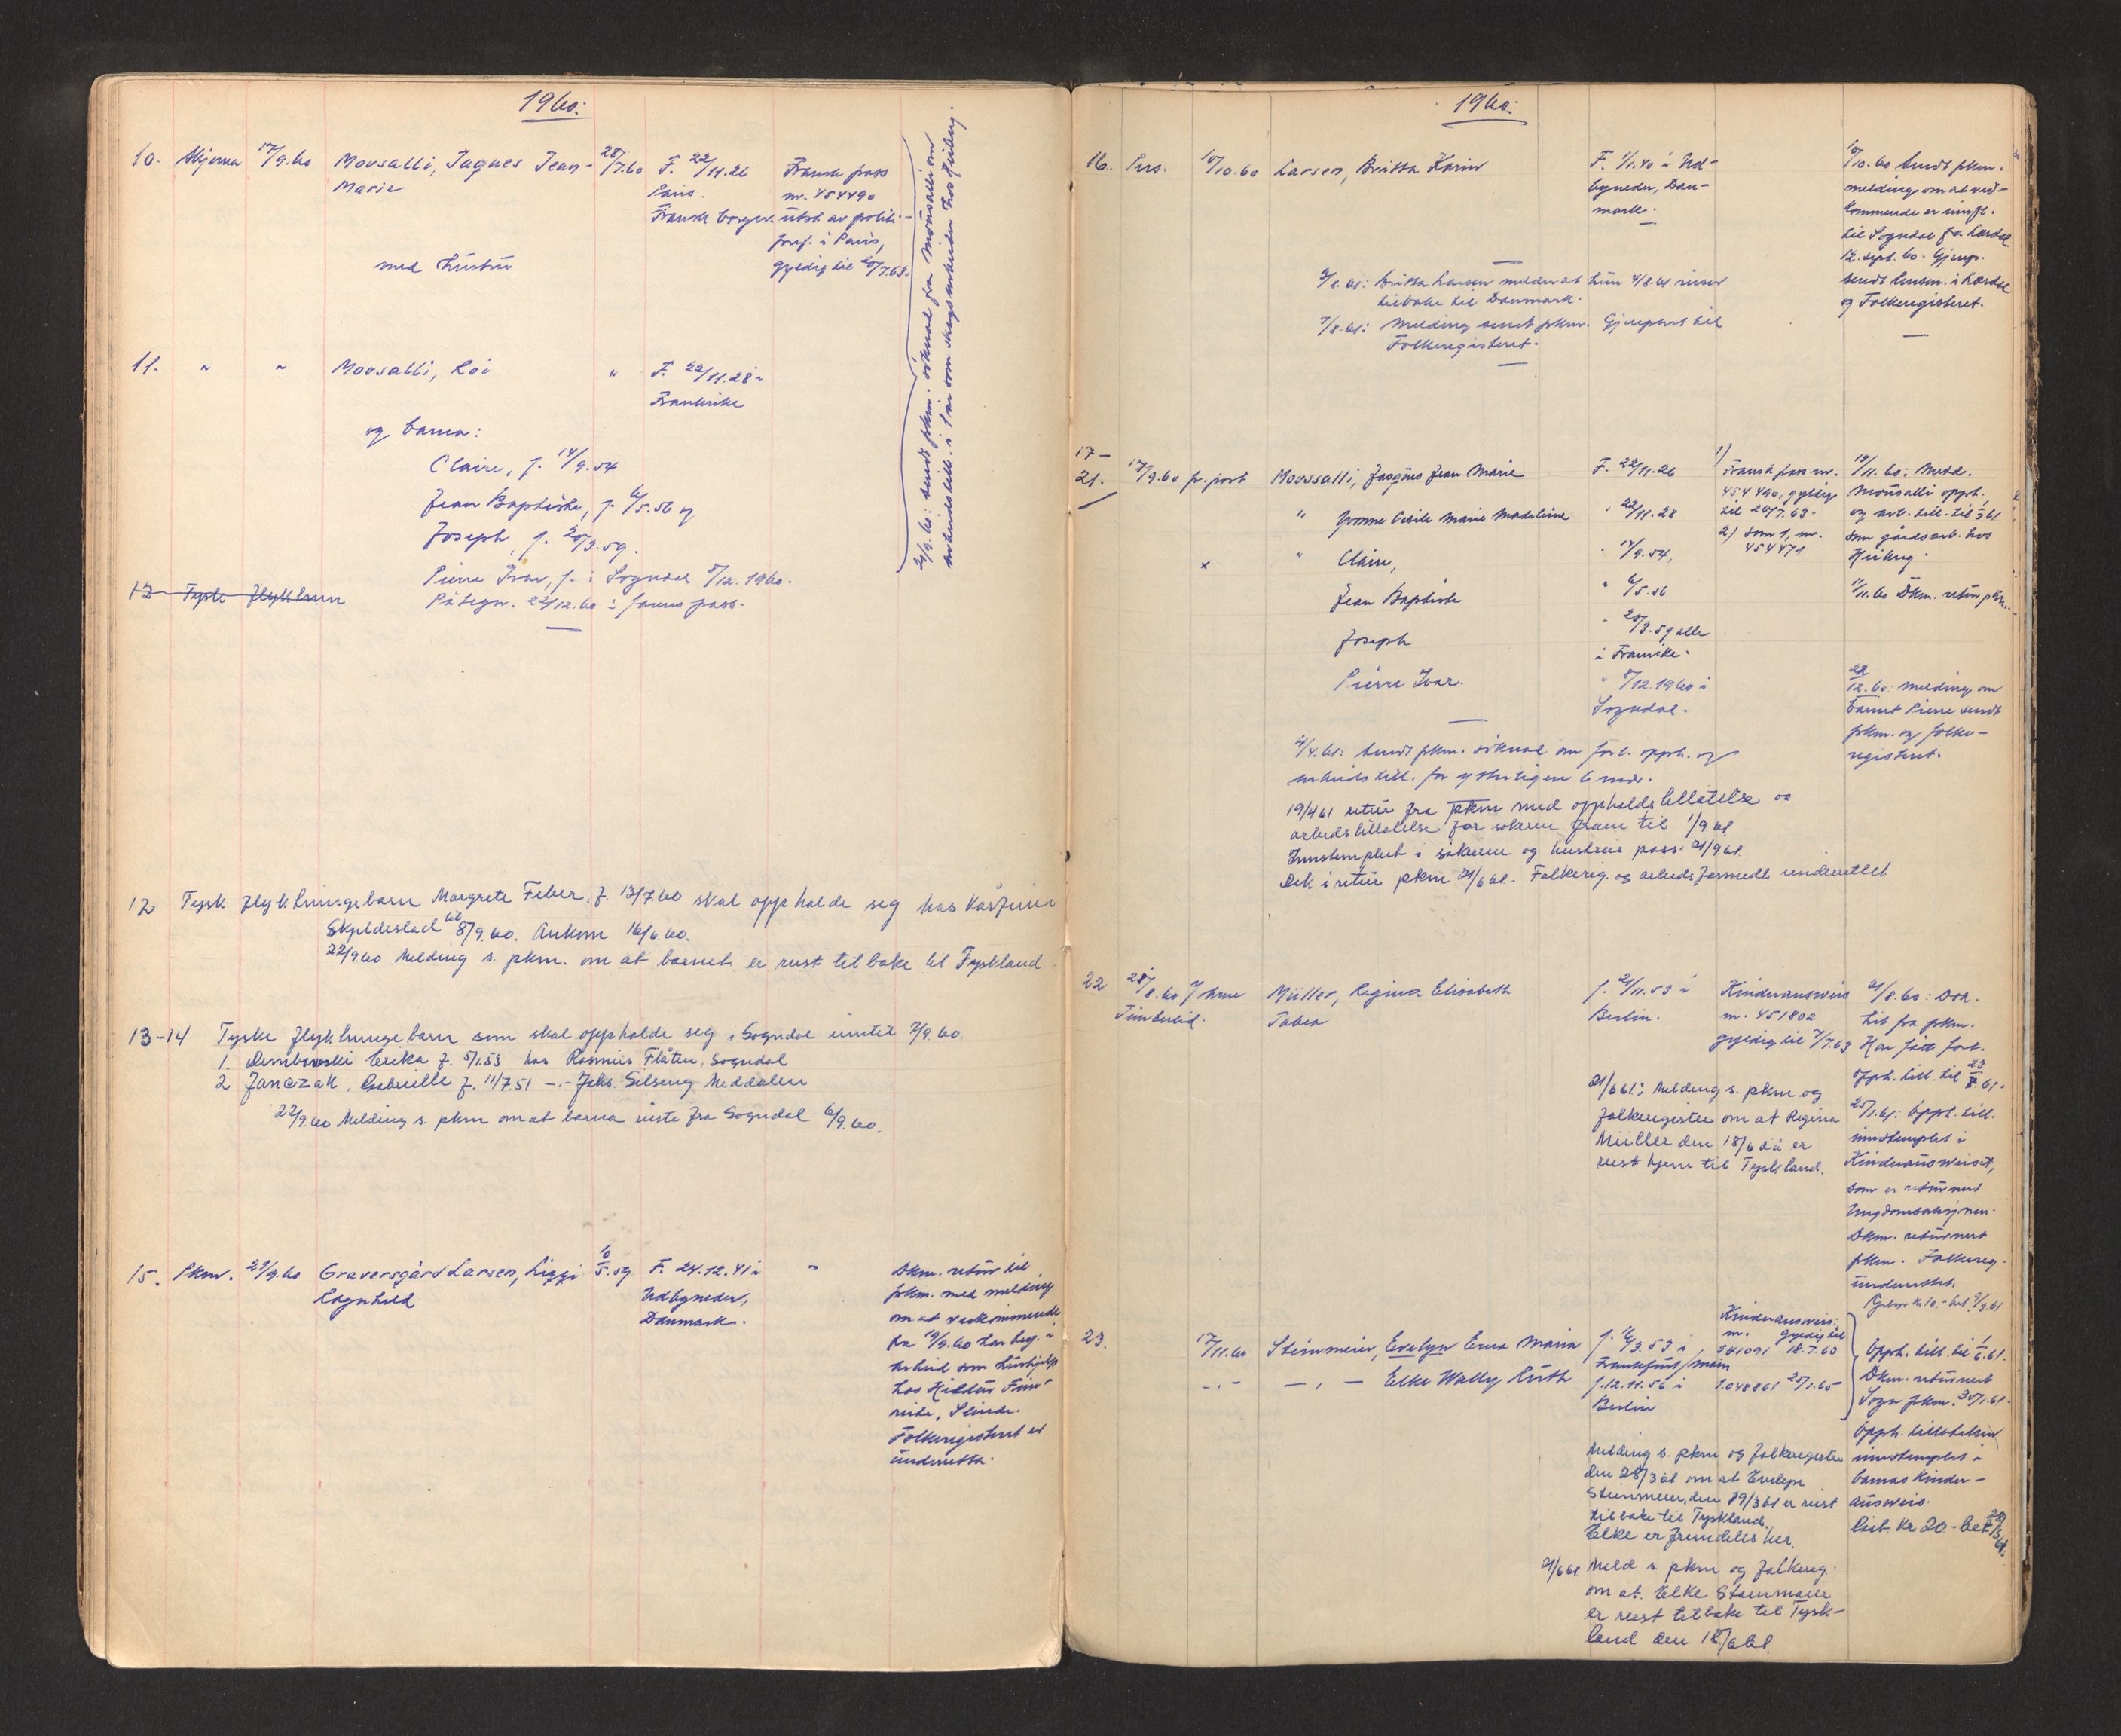 1960:
10. Skjema 17/9.60 Moosalli, Jaques Jean- 28/7.60 F. 22/11.26 Fransk pass
Marie Paris. nr. 454490
Fransk borger. utst. av politi-
pref. i Paris,
med hustru gyldig til 20/7.63.
11. " " Moosalli, Loi " F. 22/11.28 i
Frankrike
og barna:
Claire, f. 14/9.54
Jean Baptiste, f. 6/5.56 og
Joseph, f. 20/3.59.
Pierre Ivar, f. i Sogndal 5/12.1960.
12 Tysk flyktbarn
Påtegn. 22/12.60 i farens pass.
21/9.60: sendt pkm. söknad fra Mousalli om
arbeidstill. i 1 år som skogsarbeider hos
12 Tysk flyktningebarn Margrete Feber, f. 13/7.60 skal oppholde seg hos Kårfinn
Skjeldestad til 8/9.60. Ankom 16/6.60.
22/9.60 Melding s. pkm. om at barnet er reist tilbake til Tyskland
13-14 Tyske flyktningebarn som skal oppholde seg i Sogndal inntil 7/9.60.
1. Dembowski Erika f. 5/1.53 hos Rasmus Flåten, Sogndal
2 Janczak, Gabrielle f. 11/7.51 -.- Johs. Selseng Meddalen
22/9.60 Melding s. pkm om at barna reiste fra Sogndal 6/9.60.
15. Pkm. 29/9.60 Graversgård Larsen, Liggi 10/5.59 F. 24.12.41 i " Dkm. retur til
Ragnhild Udbyneder, pkm. med melding
Danmark. om at vedkommende
fra 19/9.60 har beg. i
arbeid som hushjelp
hos Hilltur Fim-
reite, Slinde.
Folkeregisteret er
underretta.
1960:
16. Pers. 10/10.60 Larsen, Britta Karin F. 1/1.40 i Ud- 10/10.60 sendt pkm.
byneder, Dan- melding om at ved-
mark. kommende er innfl.
til Sogndal fra Lærdal
12. sept. 60. Gjenp.
sendt lensm. i Lærdal
og Folkeregisteret.
3/8.61: Britta Larsen melder at hun 4/8.61 reiser
tilbake til Danmark.
7/8.61: Melding sendt pkm. Gjenpart til
Folkeregisteret.
17-
21. 17/9.60 pr. post Moussalli, Jaques Jean Marie F. 22/11.26 1) Fransk pass nr. 454490, gyldig til 20/7.63. 19/11.60: Medd.
" Yvonne Cecile Marie Madeleine " 22/11.28 2) Som 1, nr. 454471 Mousalli opph.
og arb. till. til 1/3 61
som gårdsarb. hos
x " Claire, " 14/9.54,
Jean Baptiste " 6/5.56 11/11.60 Dkm. retur pkm.
Joseph " 20/3.59 alle
i Frankrike.
Pierre Ivar. " 5/12.1960 i 22/12.60: melding om
Sogndal. barnet Pierre sendt
pkm. og folke-
registeret.
4/4.61: Sendt pkm. söknad om forl. opph. og
arbeidstill. for ytterligere 6 mdr.
19/4 61 retur fra pkm med oppholdstillatelse og
arbeidstillatelse for søkeren fram til 1/9 61
Innstemplet i søkerens og hustrus pass. 21/9 61.
Dok. i retur pkm 21/6 61. Folkereg. og arbeidsformidl underrettet
22 28/8.60 Müller, Regina Elisabeth f. 21/11.53 i Kinderausweis 21/8.60: Dok.
Tabea Berlin. nr. 451802 hit fra pkm.
gyldig til 7/7.63 Har fått forl.
opph. till. til 23/8.61.
21/6 61: Melding s. pkm og 25/1.61: Opph. till.
folkeregister om at Regina innstemplet i
Müller den 18/6 då er Kinderausweiset,
reist hjem til Tyskland. som er returnert
Ungdomsaksjonen.
Dkm. returnert
pkm. Folkereg.
underrettet.
Gebyr kr 10.- bet 9/3.61
23. 17/11.60 Steinmeier, Evelyn Erna Maria f. 16/3.53 i Kinderausweis: nr. gyldig til 541091 18.7.63 Opph. till. til 1/6.61.
Frankfurt/main
-.- -.- Elke Wally Ruth f. 12.11.56 i 1.048861 25/1.65 Dkm. returnert
Berlin Sogn pkm. 30/1.61.
Opph. tillatelsen
Melding s. pkm og folkeregister innstemplet i
den 28/3 61 om at Evelyn barnas Kinder-
Steinmeier den 19/3 61 er reist ausweis.
tilbake til Tyskland. Geb. kr 20.- bet 28/3 61.
Elke er fremdeles her.
21/6 61 Meld s. pkm og folkereg.
om at Elke Steinmaier
er reist tilbake til Tysk-
land den 18/6 61.